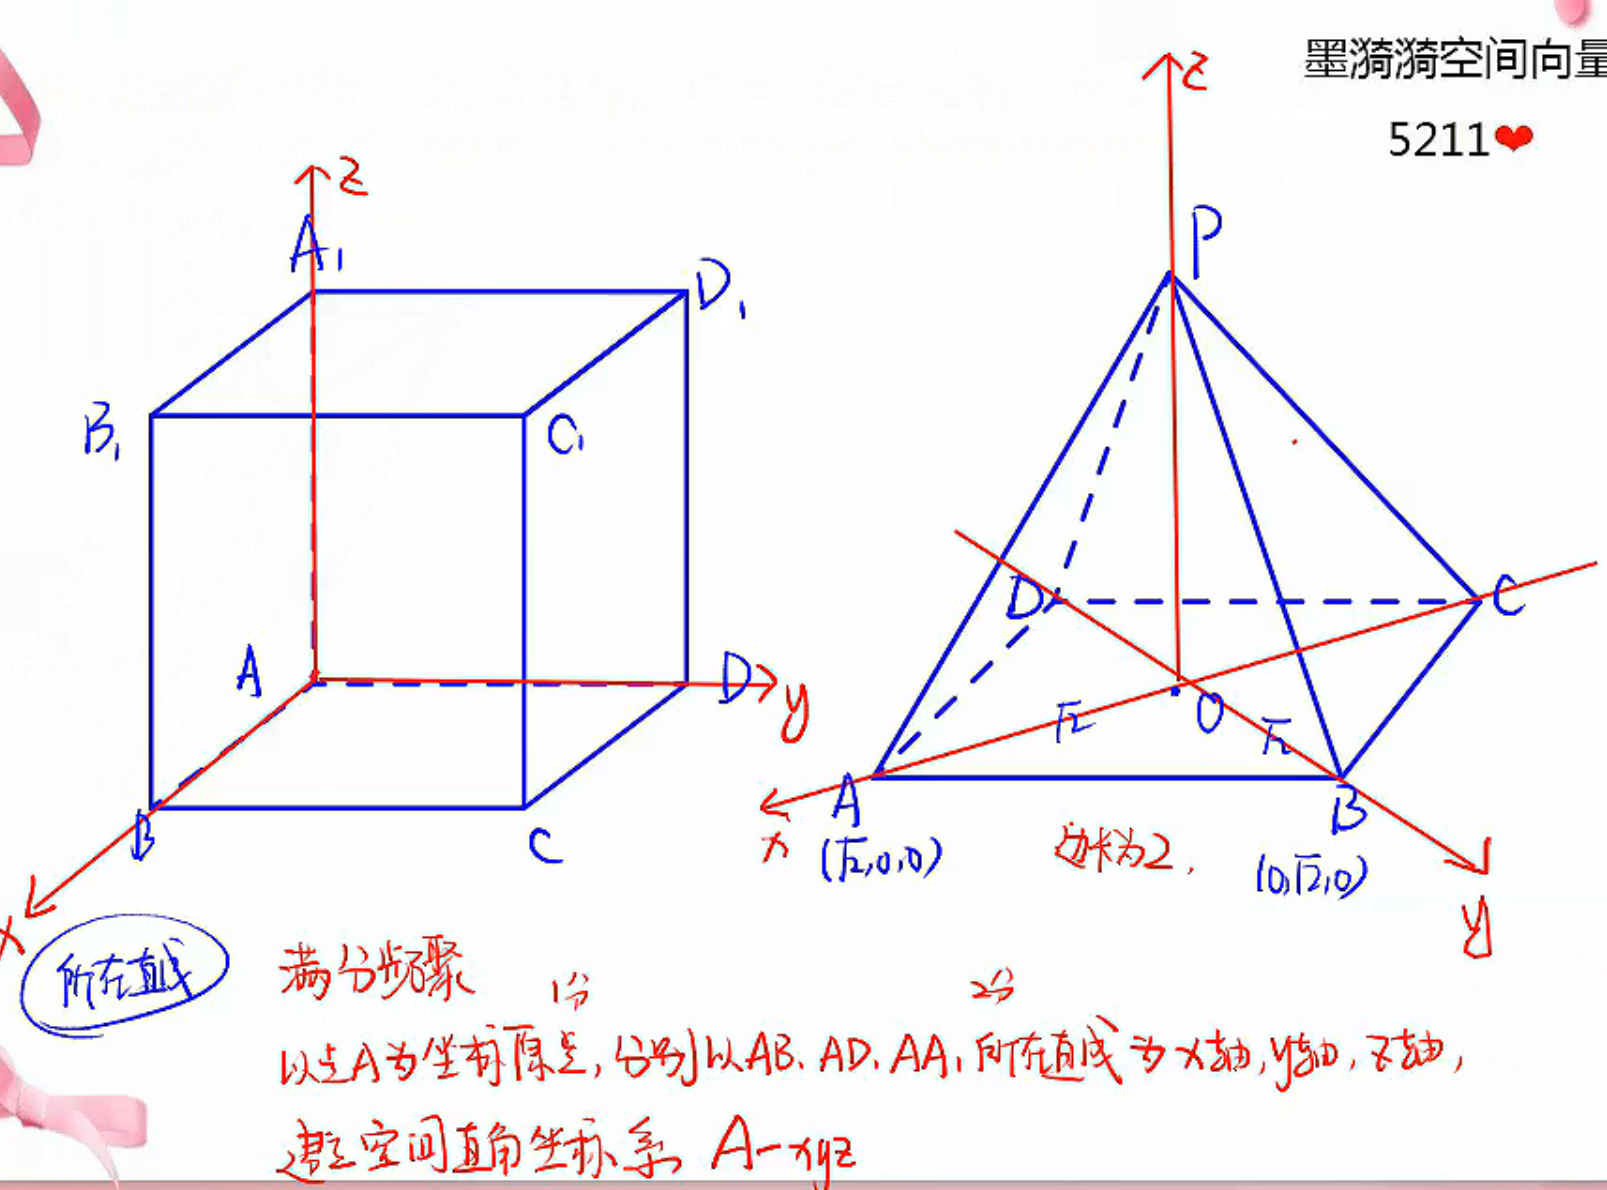 墨漪漪空间向量
5211❤
z
A₁
D₁
B₁
C₁
A
D
y
B
C
x
z
P
D
C
O
√2
√2
A
B
x
(√2,0,0)
边长为2,
(0,√2,0)
y
所在直线
满分步骤
1分
2分
以点A为坐标原点,分别以AB、AD、AA₁所在直线为x轴,y轴,z轴,
建立空间直角坐标系A-xyz